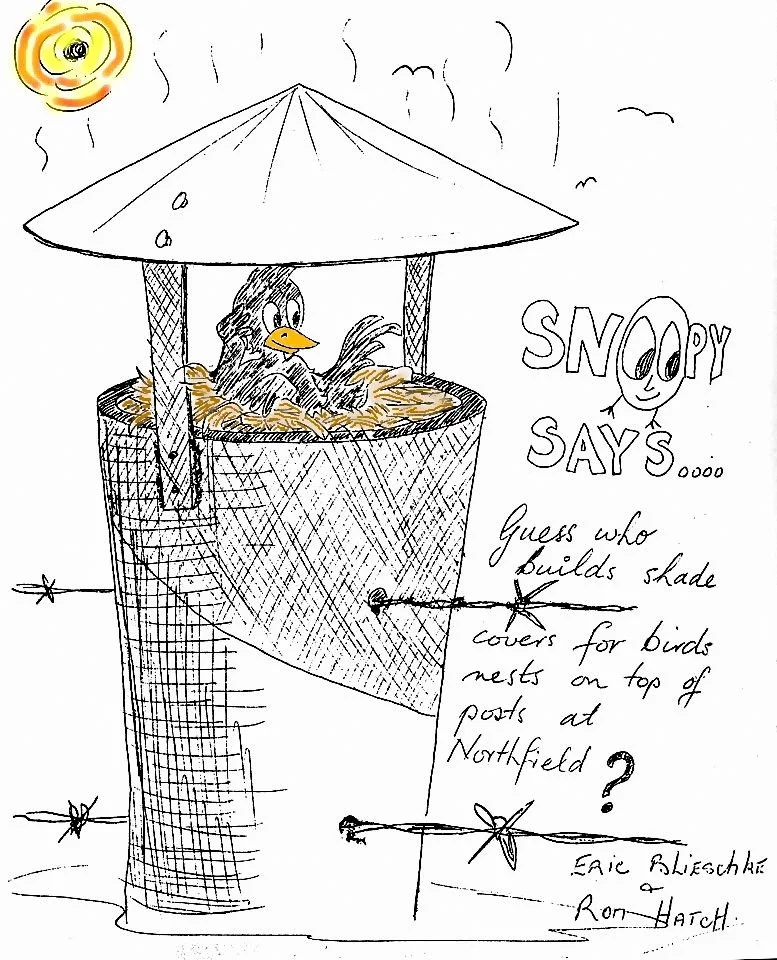 SNOOPY
SAYS....
Guess who
builds shade
covers for birds
nests on top of
posts at
Northfield ?
Eric Blieschke
&
Ron Hatch.